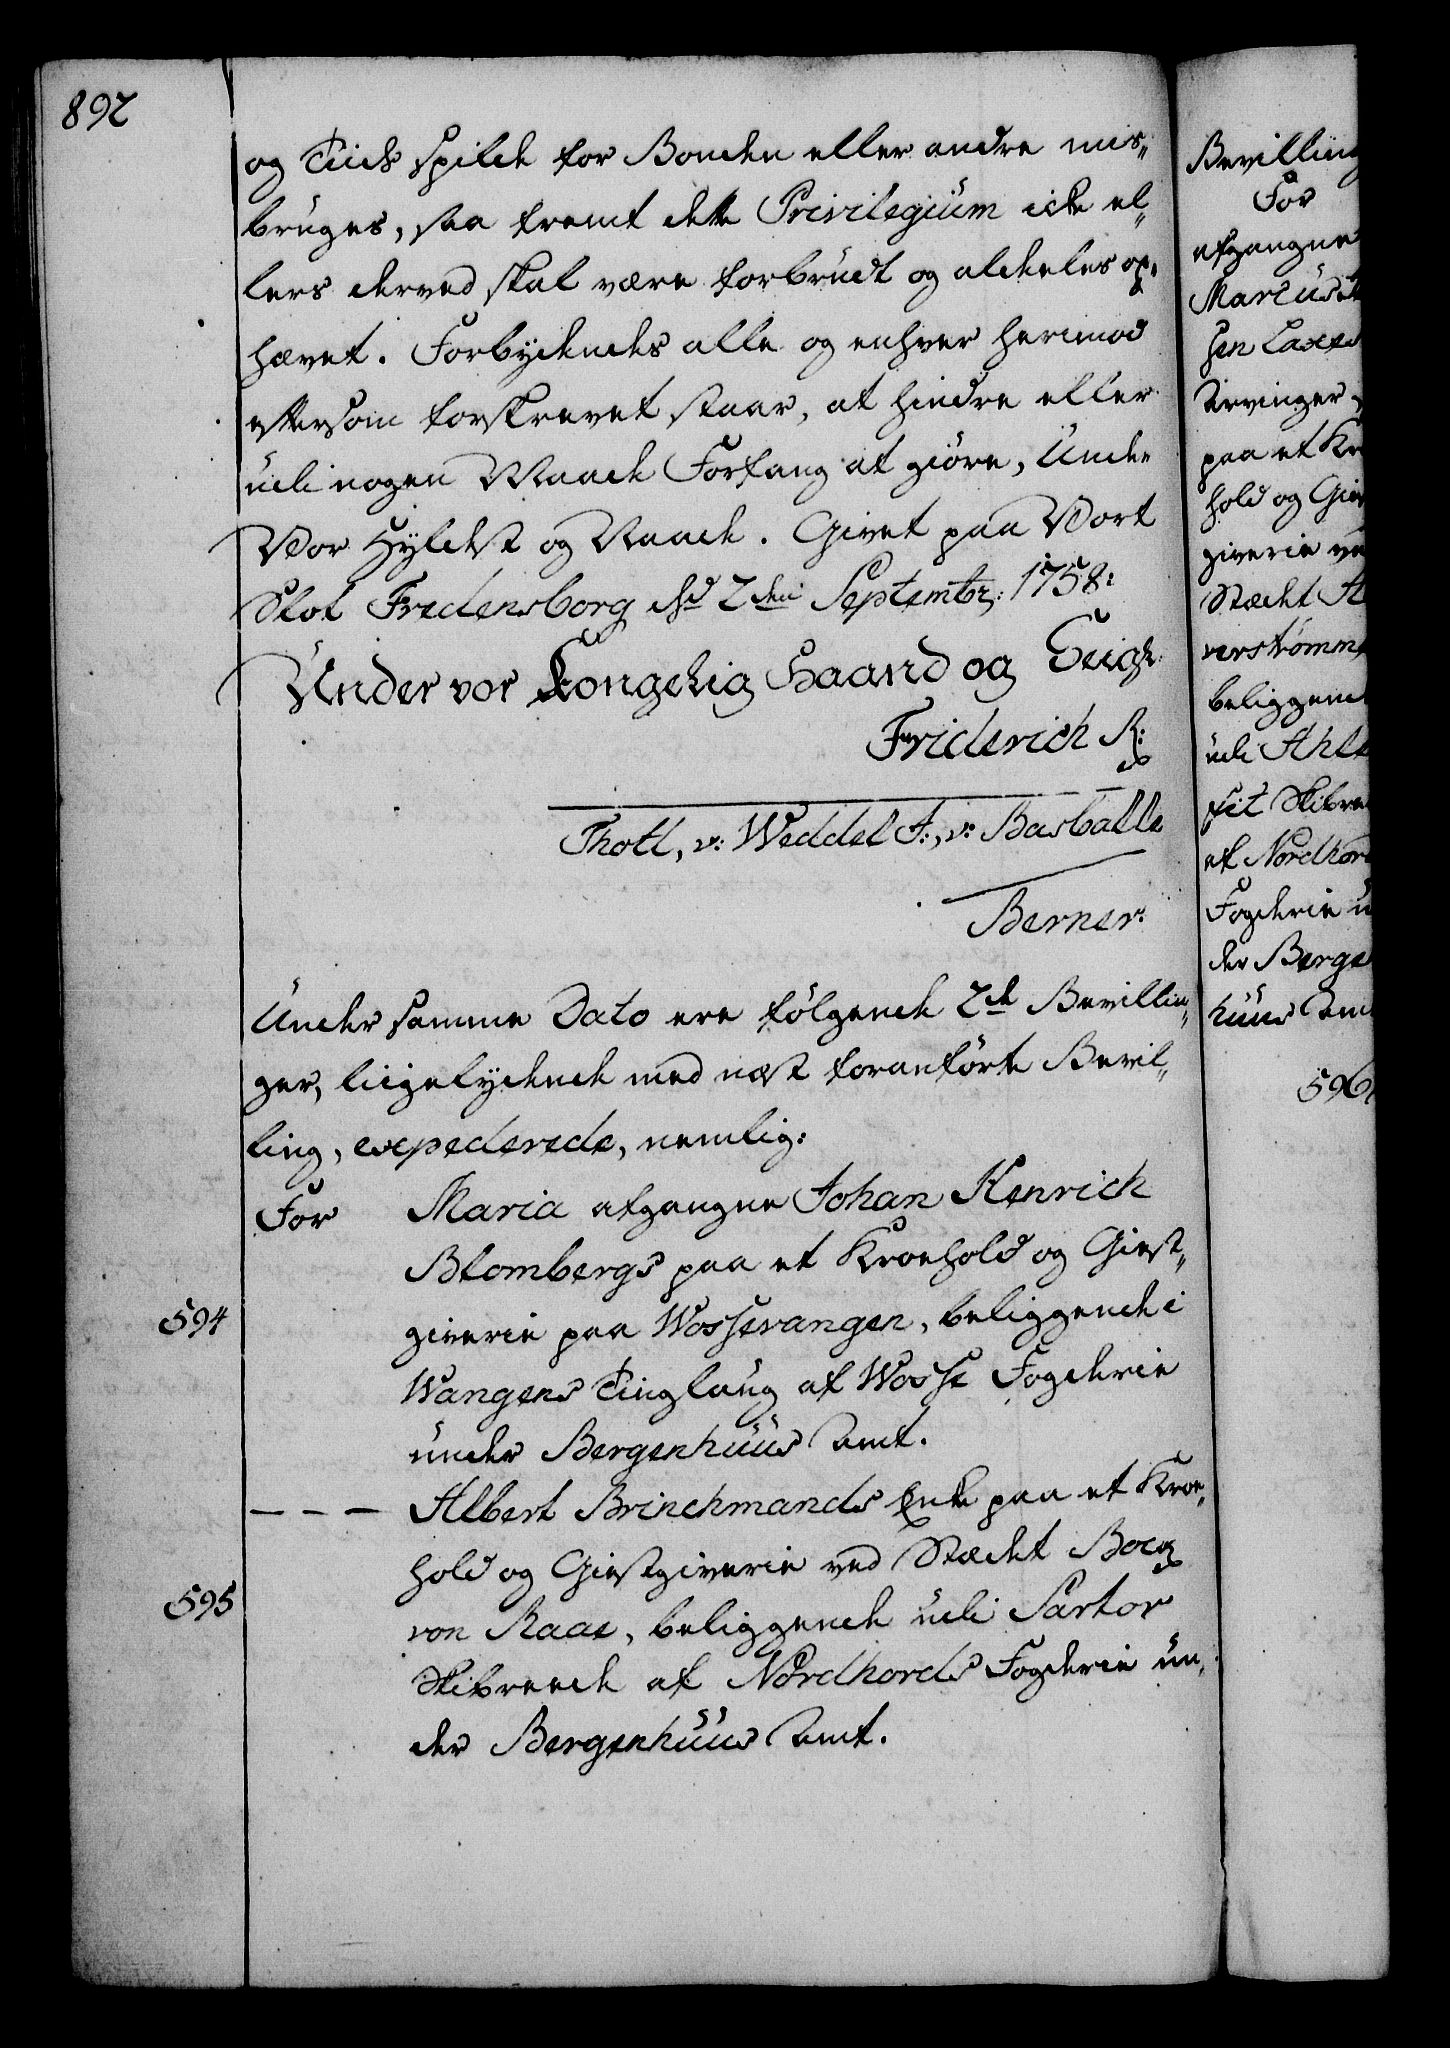 892
og Tiids spilde for Bonden eller andre mis„
bruges, saa fremt dette Privilegium icke el„
lers derved skal være forbrudt og aldeles op„
hævet. Forbydendes alle og enhver herimod
eftersom forskrevet staar, at hindre eller
udi nogen Maade Forfang at giöre, Under
Vor Hyldest og Naade. Givet paa Vort
Slot Fredensborg d 2den Septembr: 1758:
Under vor Kongelig Haand og Seigl.
Friderich R:
Thott, v: Weddel F:, v: Barballe
Berner.
Under samme Dato ere fölgende 2de Bevillin„
ger, liigelydende med næst foranförte Bevil„
ling, expederede, nemlig:
For Maria afgangne Johan Henrich
Blombergs paa et Kroehold og Giest„
594 giverie paa Wossevangen, beliggende i
Wangens Tinglaug af Wosse Fogderie
under Bergenhuus Amt.
— — — Albert Brinchmands Enke paa et Kroe„
hold og Giestgiverie ved Stædet Bocg
595 von Raae, beliggende udi Sartor
Skibreede af Nordhords Fogderie un„
der Bergenhuus Amt.
Bevilling
For
afgangne
Marcus
sen Laxes
Arvinger
paa et Kr
hold og Gies
giverie ve
Stædet A
verströmm
beliggende
udi Ahle
fit Skibre
af Nordhor
Fogderie u
der Bergen
huus Amt
596